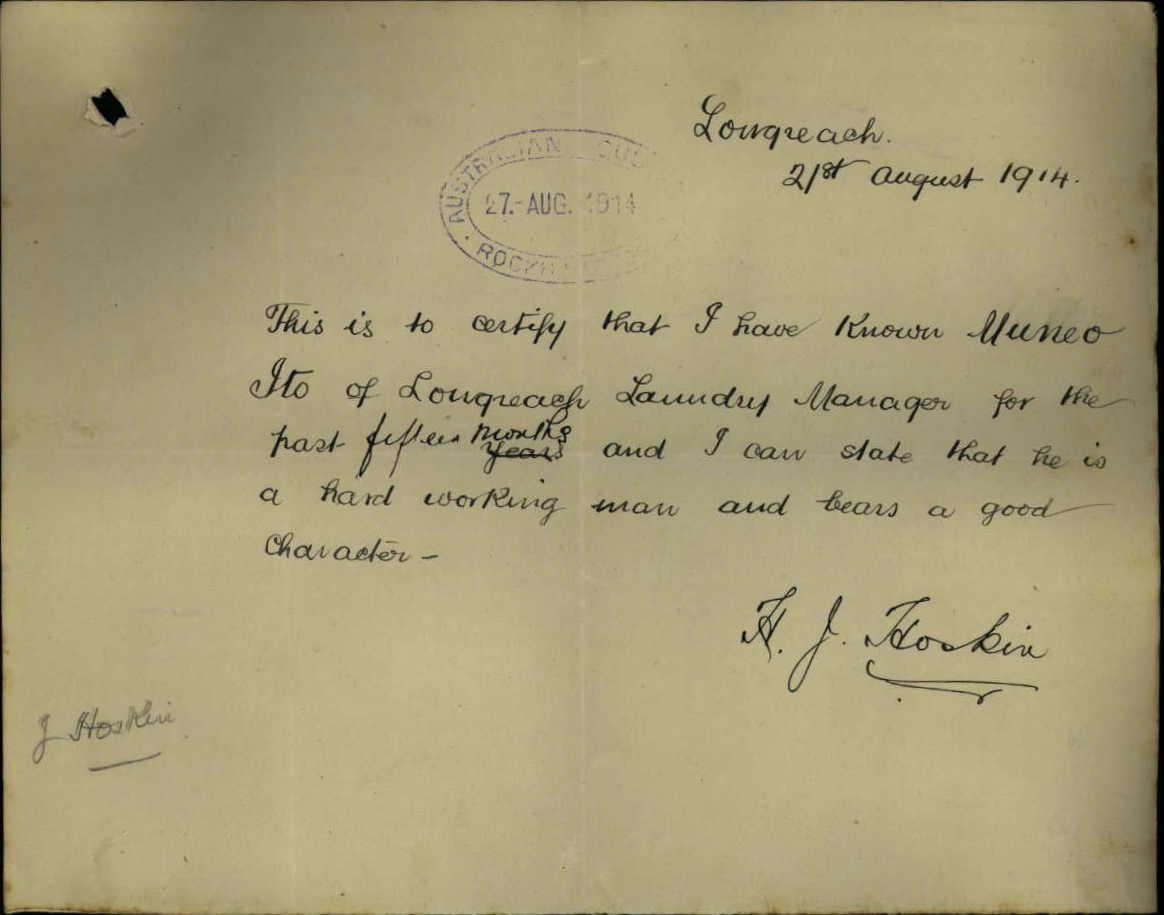 Longreach.
21st august 1914.
AUSTRALIAN CU
27.-AUG. 1914
ROCKH
This is to certify that I have known Muneo
Ito of Longreach Laundry Manager for the
past fifteen months years and I can state that he is
a hard working man and bears a good
character –
H. J. Hoskin
J Hoskin